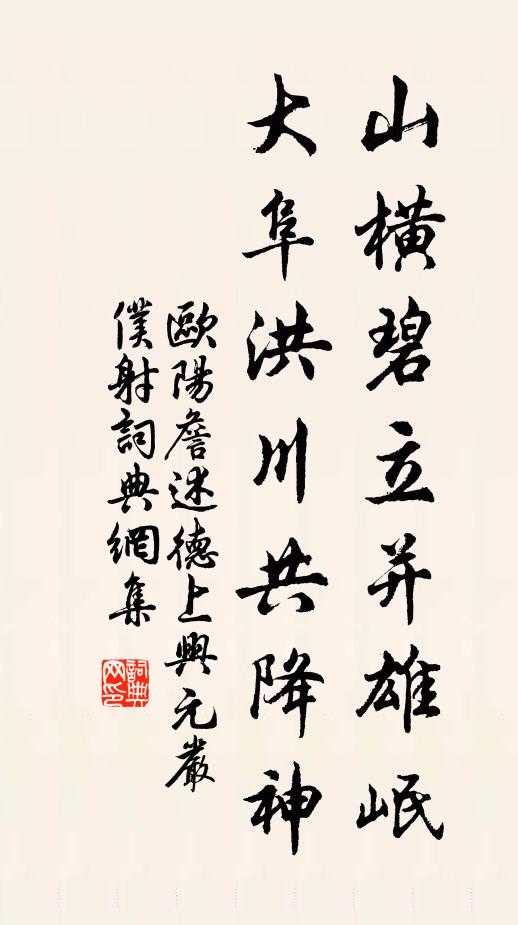 山橫碧立并雄岷
大阜洪川共降神
歐陽詹述德上興元嚴
僕射詞典網集
詞典网印